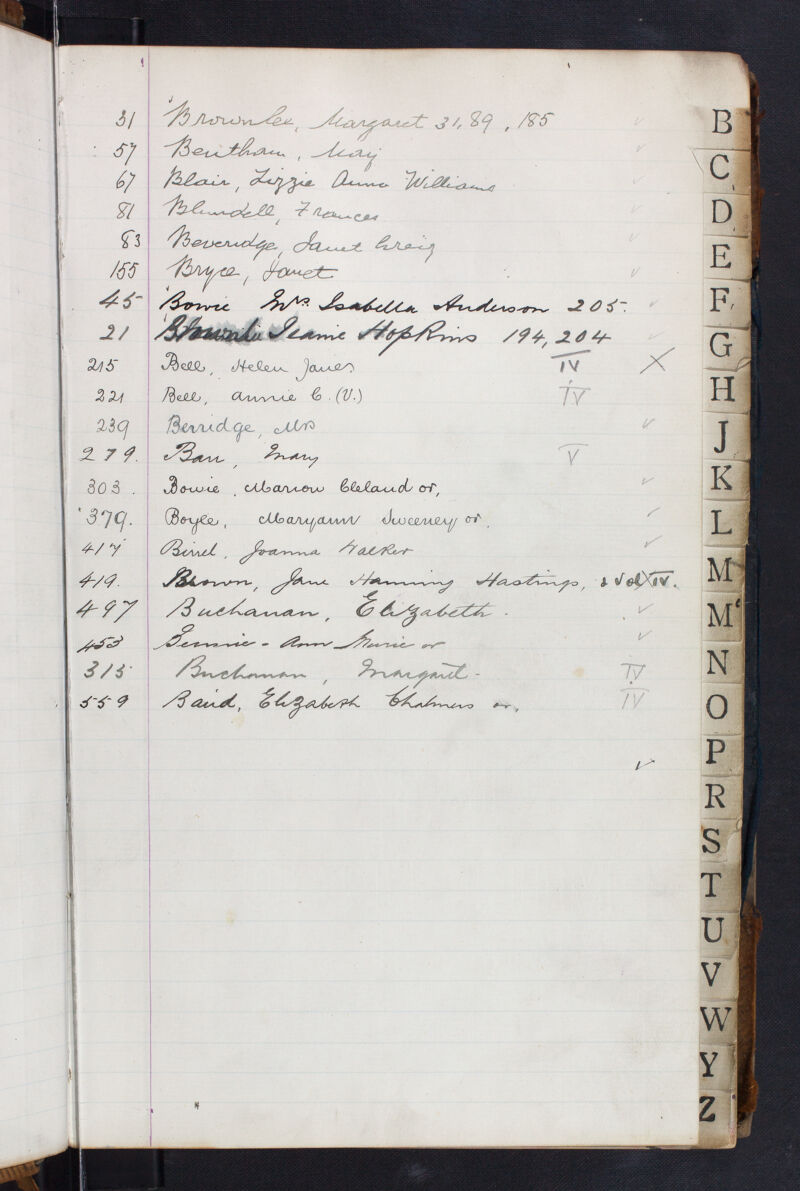 31 Brownlee, Margaret 31, 89, 185
57 Bentham, May
67 Blair, Lizzie Anna Williams
81 Blundell, Frances
83 Beveridge, Janet Greig
155 Bryce, Janet
45 Bowie Mrs. Isabella Anderson 205.
21 Jeanie Hopkins 194, 204
215 Bell, Helen Janes IV X
221 Bell, Annie C. (V.) IV
239 Berridge, Mrs
279. Barr, Mary V
303. Bowie, Marion Cleland or,
379. Boyle, Maryann Sweeney or.
417 Birrel, Joanna Walker
419. Brown, Jane Hanning Hastings, Vol IV.
497 Buchanan, Elizabeth.
453 Ann or
315 Buchanan, Margaret. IV
559 Baird, Elizabeth Chalmers or. IV
B
C
D
E
F
G
H
J
K
L
M
Mc
N
O
P
R
S
T
U
V
W
Y
Z